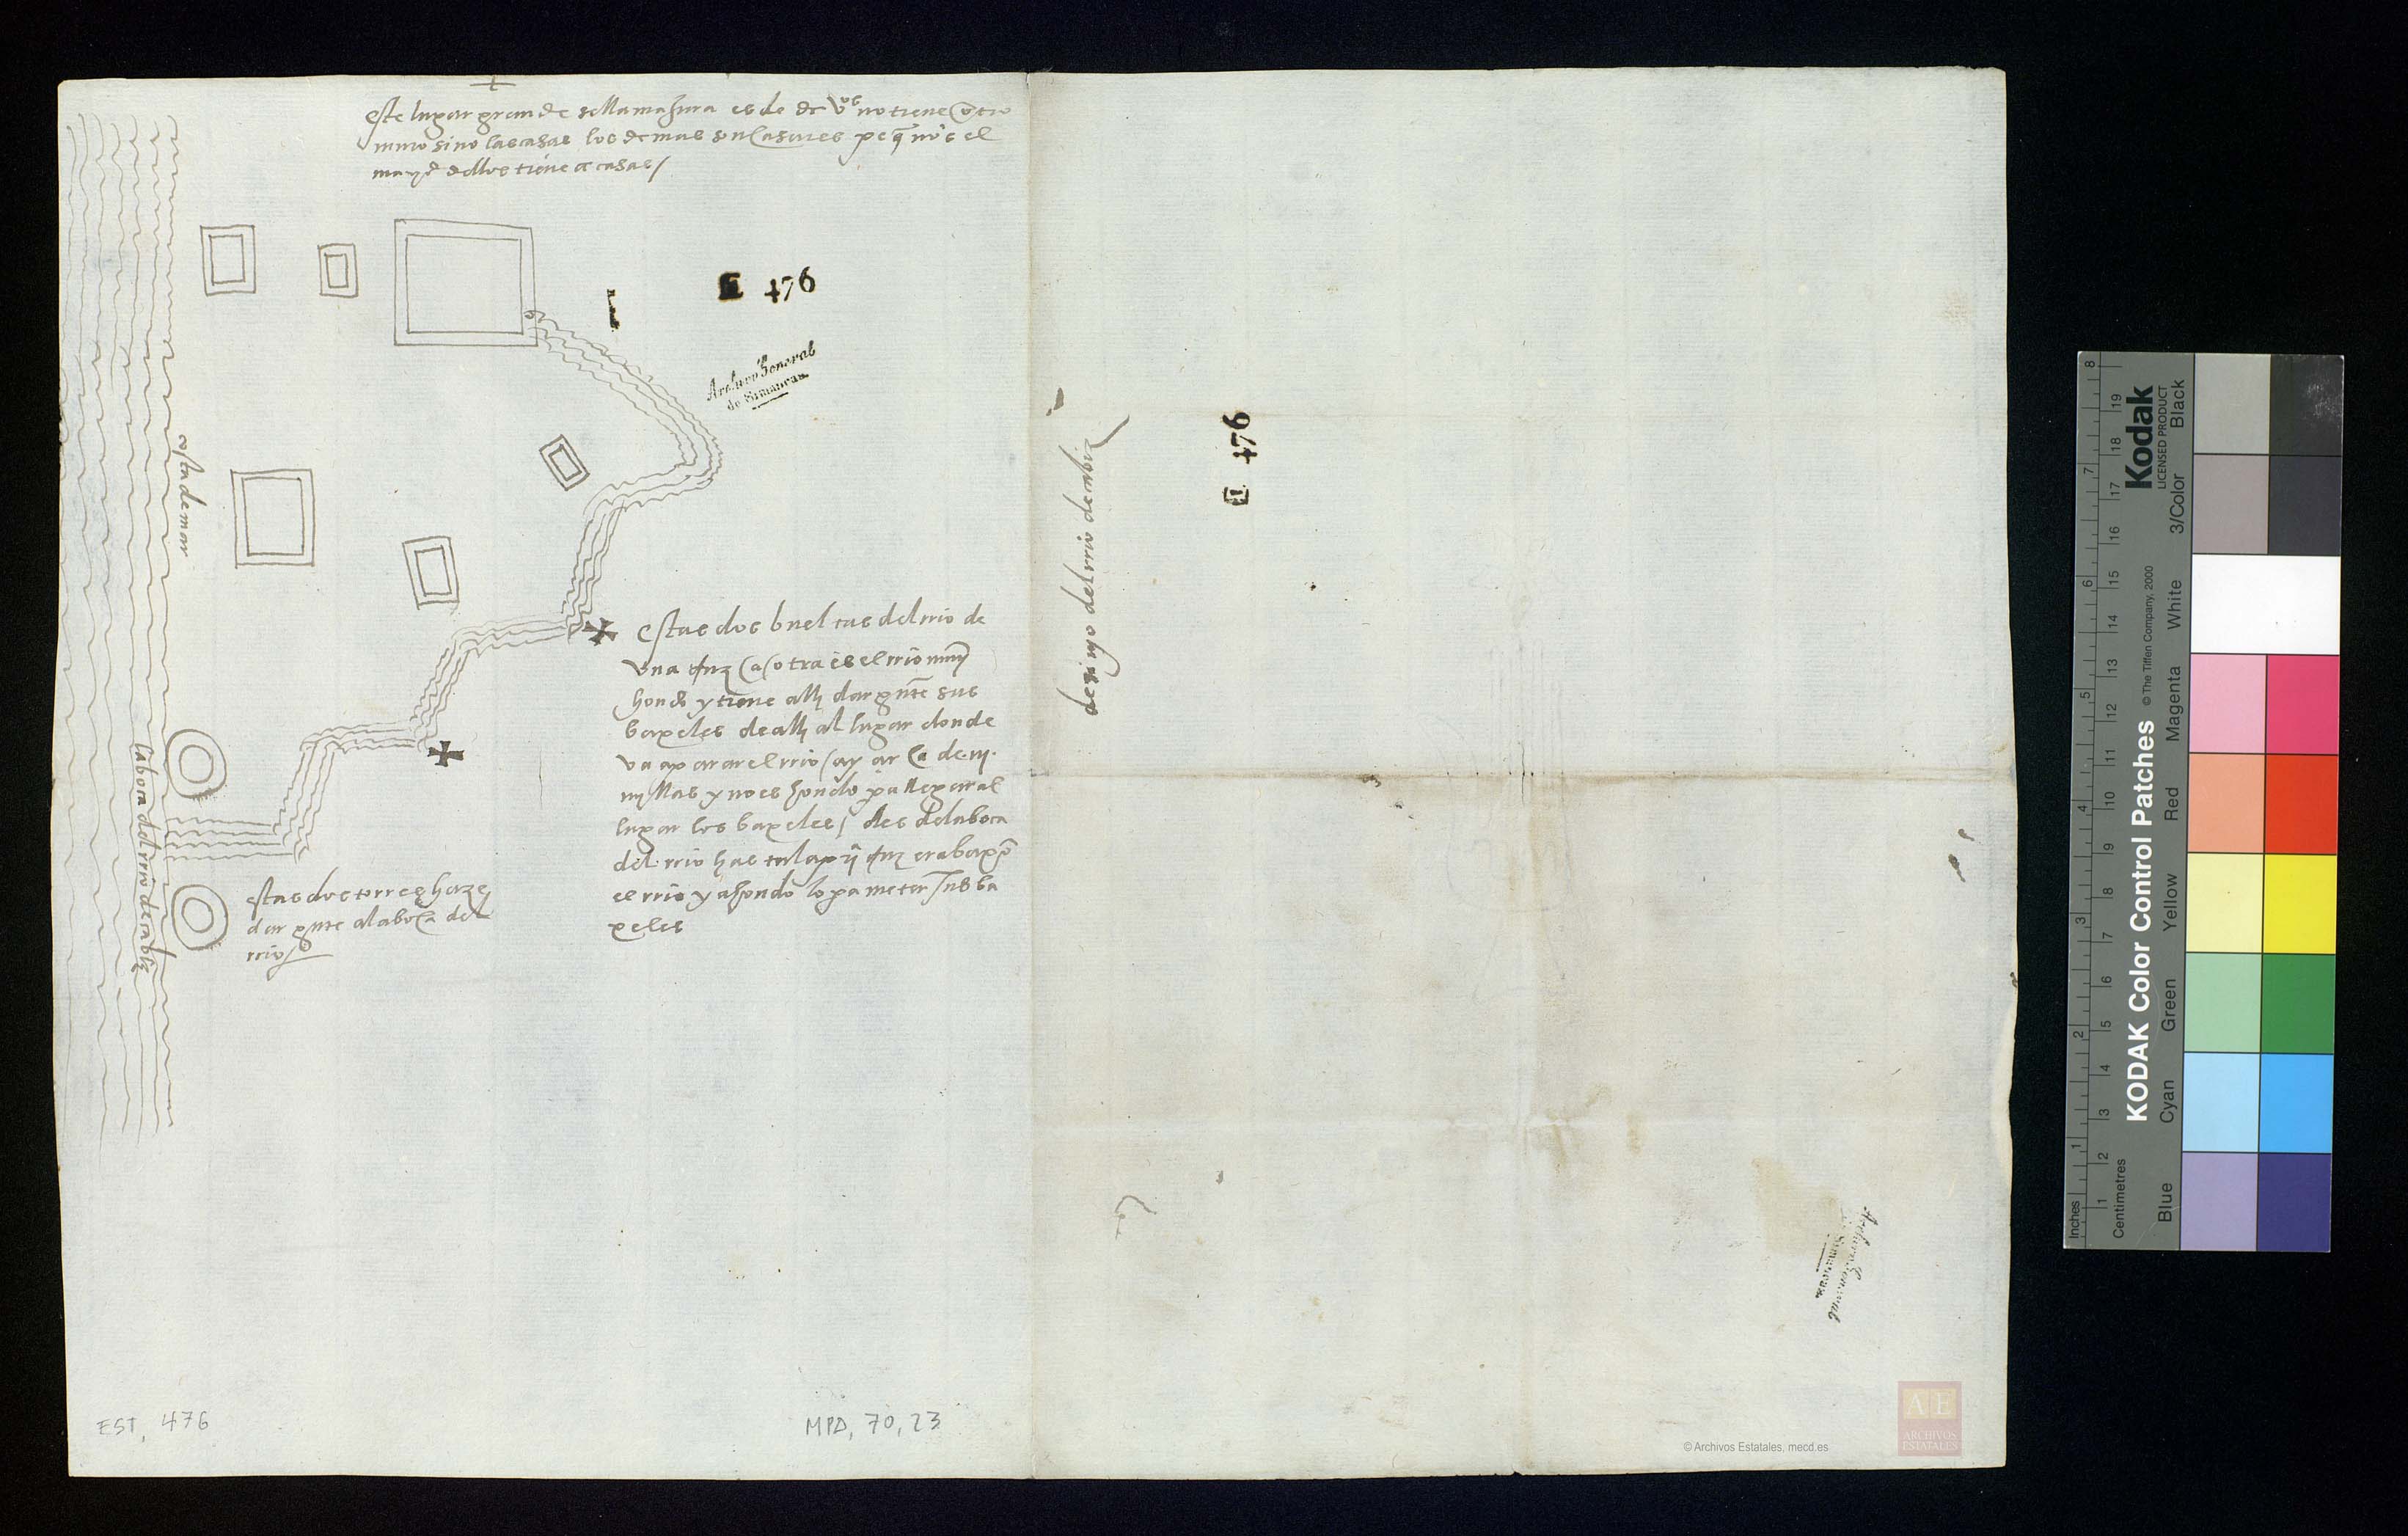 este lugar grande se llama fura es de de Vos no tiene otro
muro sino las casas los demas son casares pequenos el
mayor dellos tiene casas /
E 476
1
Archivo General
de Simancas
costa de mar
la boca del rrio de cabiz
estas dos bueltas del rrio de
una a otra es el rrio muy
hondo y tiene alli dargute sus
baxeles de alli al lugar donde
va a parar el rrio ay de
millas y no es hondo pa llegar al
lugar los baxeles / desde la boca
del rrio hasta la
el rrio y ahondo lo pa meter sus ba
xeles
estas dos torres haze
dargute a la boca del
rrio
desinyo del rrio de cabiz
E 476
Archivo General
de Simancas
EST, 476
MPD, 70, 23
© Archivos Estatales, mecd.es
AE
ARCHIVOS
ESTATALES
KODAK Color Control Patches
© The Tiffen Company, 2000
Kodak
LICENSED PRODUCT
Inches 1 2 3 4 5 6 7 8
Centimetres 1 2 3 4 5 6 7 8 9 10 11 12 13 14 15 16 17 18 19
Blue Cyan Green Yellow Red Magenta White 3/Color Black